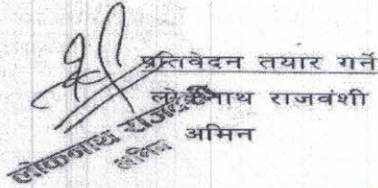 प्रतिवेदन तयार गर्ने
लोकनाथ राजवंशी
अमिन
लोकनाथ राजवंशी
अमिन